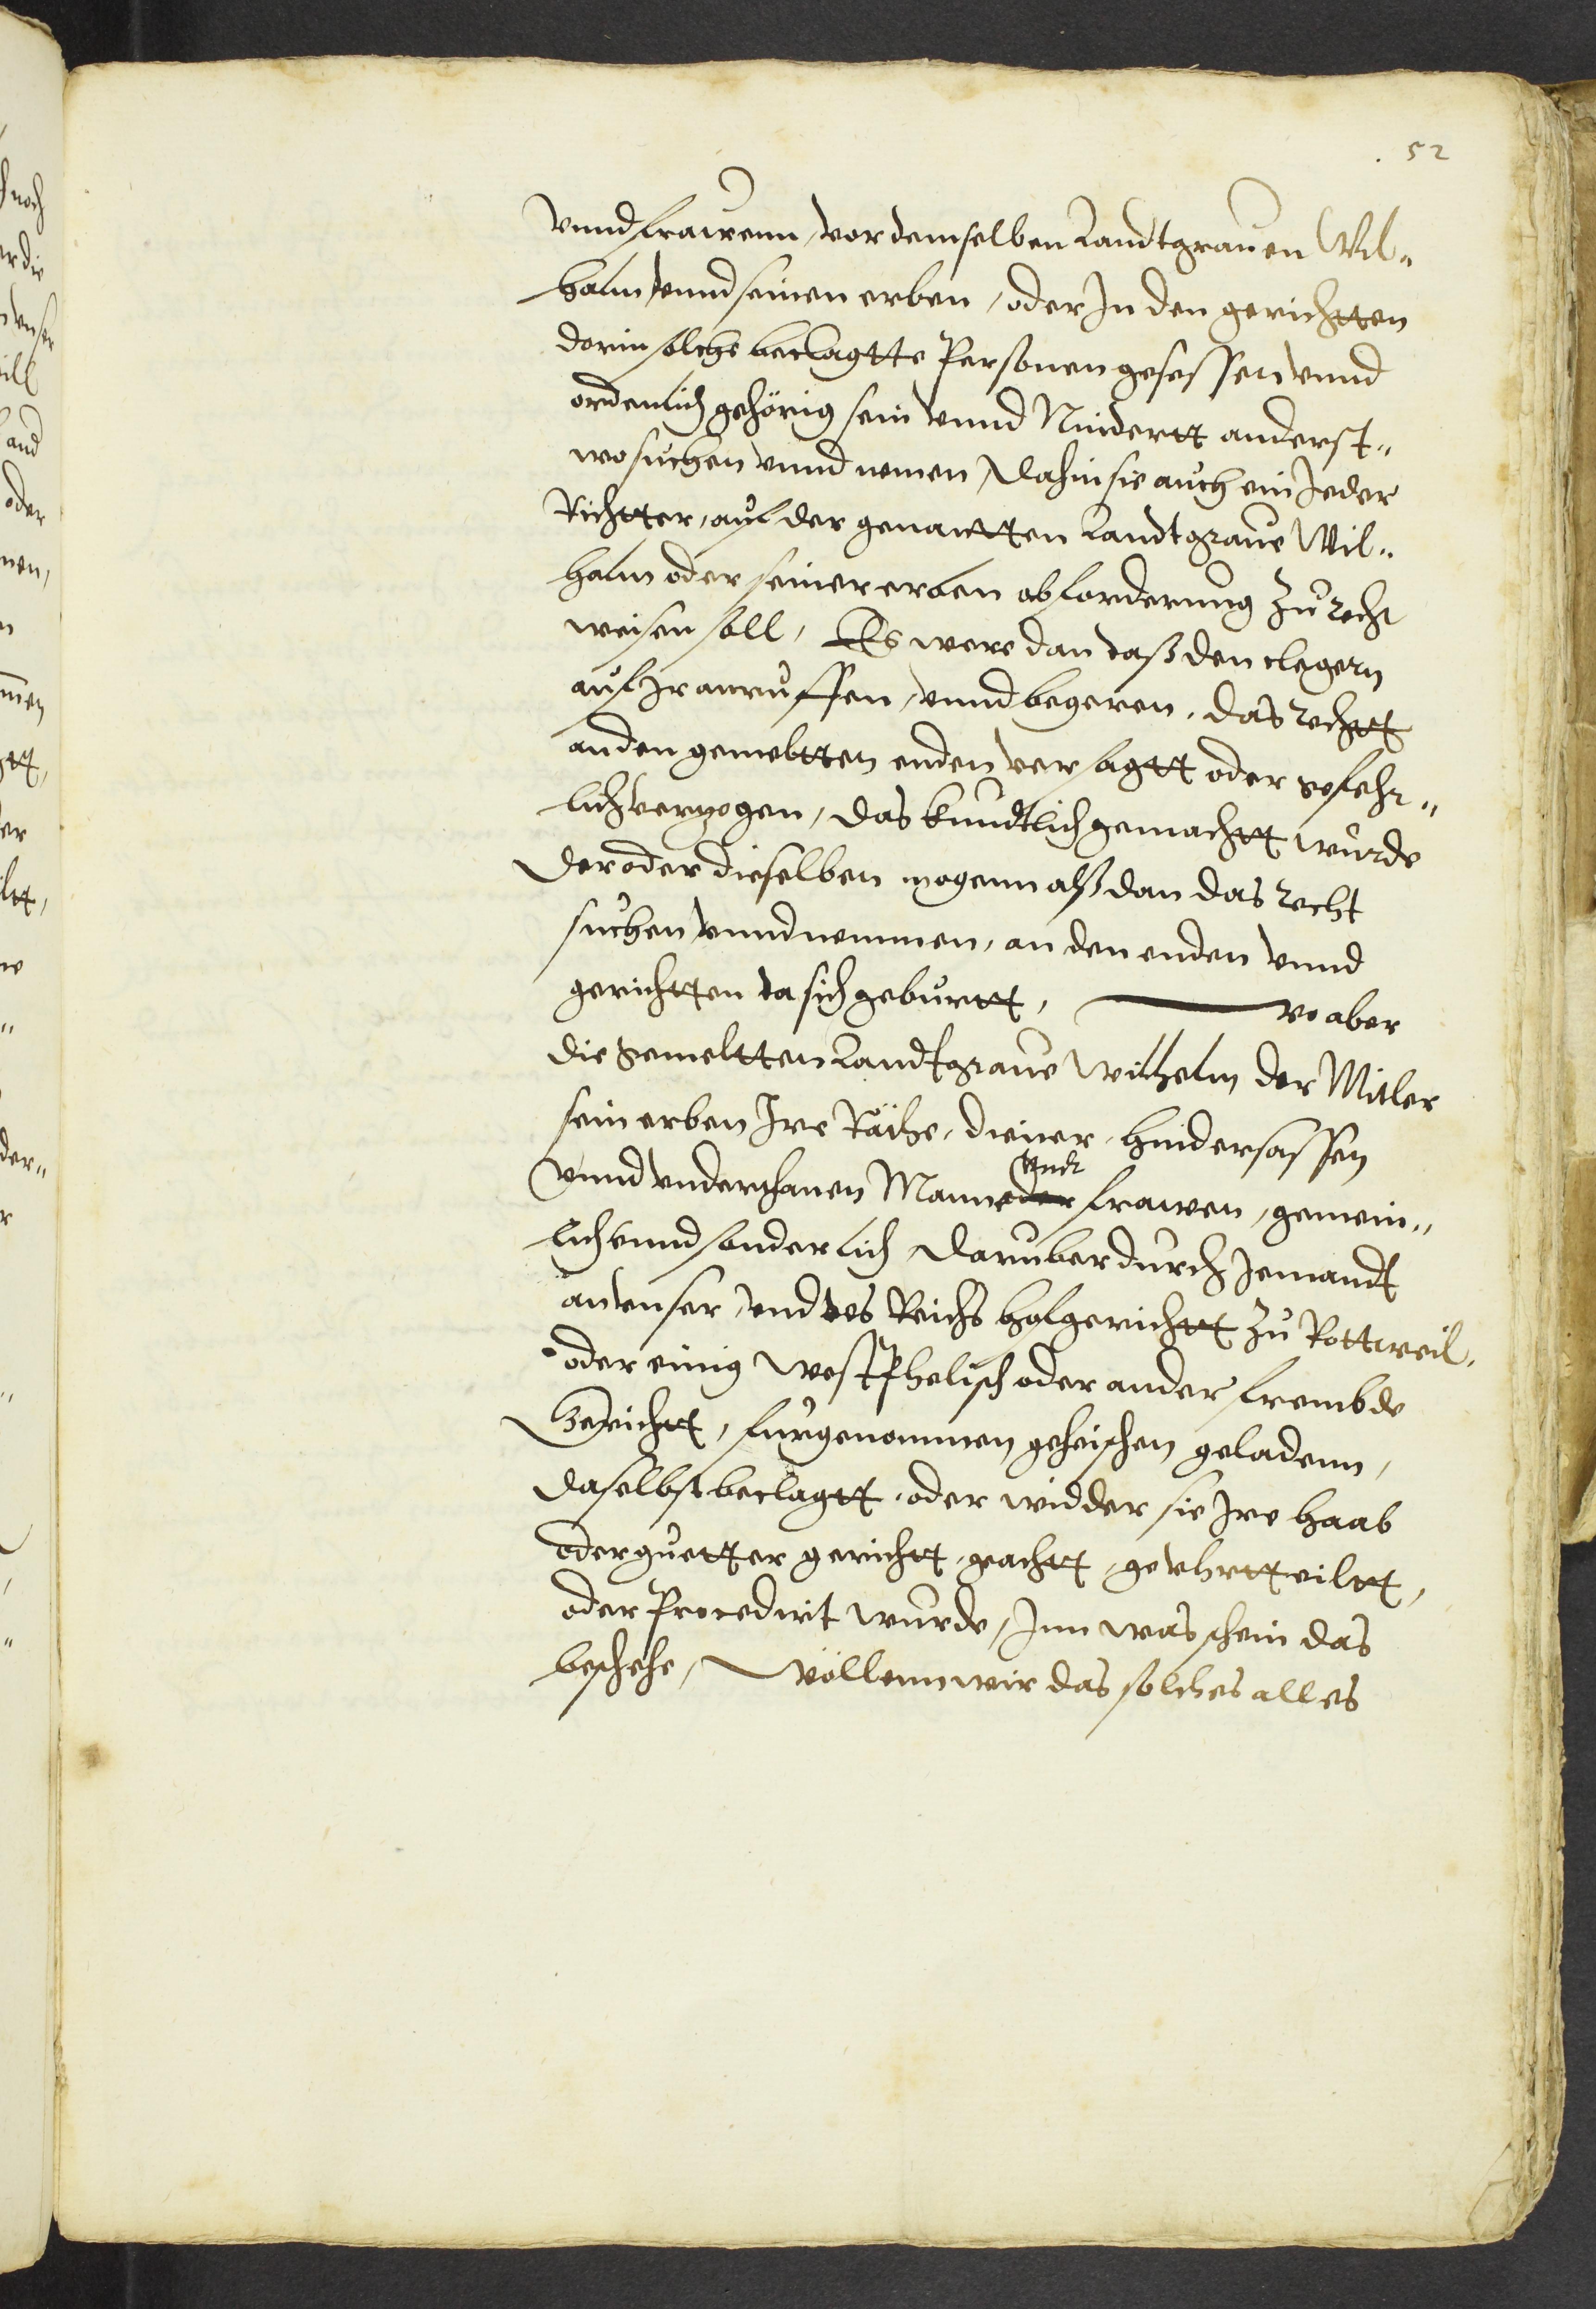 52
vnnd frawenn, vor demselben Landtgrauen Wil„
halm vnnd seinen erben, oder In den gerichtten
dorin solche beclagtte Personen gesessen vnnd
ordenlich gehörig sein vnnd Niindertt anderst„
wo suchen vnnd nemen, dahin sie auch ein Jeder
Richtter, auf der genantten Landtgraue Wil„
halm oder seiner erben abforderung zu recht
weisen soll, Es were dan daß den clegern
auf Ir anruffen, vnnd begeren, das rechtt
an den gemeltten enden versagtt oder gefehr„
lich verzogen, das kundtlich gemachtt wurde
der oder dieselben mogenn alß dan das recht
suchen vnnd nemmen, an den enden vnnd
gerichtten da sich geburtt, wo aber
die gemeltten Landtgraue Wilhelm der Mitler
sein erben Ire Räthe, diener, hindersassen
vnnd vnderthanen Mann oder vndt frawen, gemein„
lich vnnd sonderlich daruber durch Jemandt
an vnser, vnd des Reichs hofgerichtt zu Rottweil,
oder einig westphelisch oder ander frembde
Gerichtt, furgenommen geheischen geladenn,
daselbst beclagtt, oder widder sie Ire haab
oder guetter gerichtt, geachtt, gevhrtteiltt,
oder Procedirt wurde, Inn was schein das
beschehe, wöllenn wir das solches alles